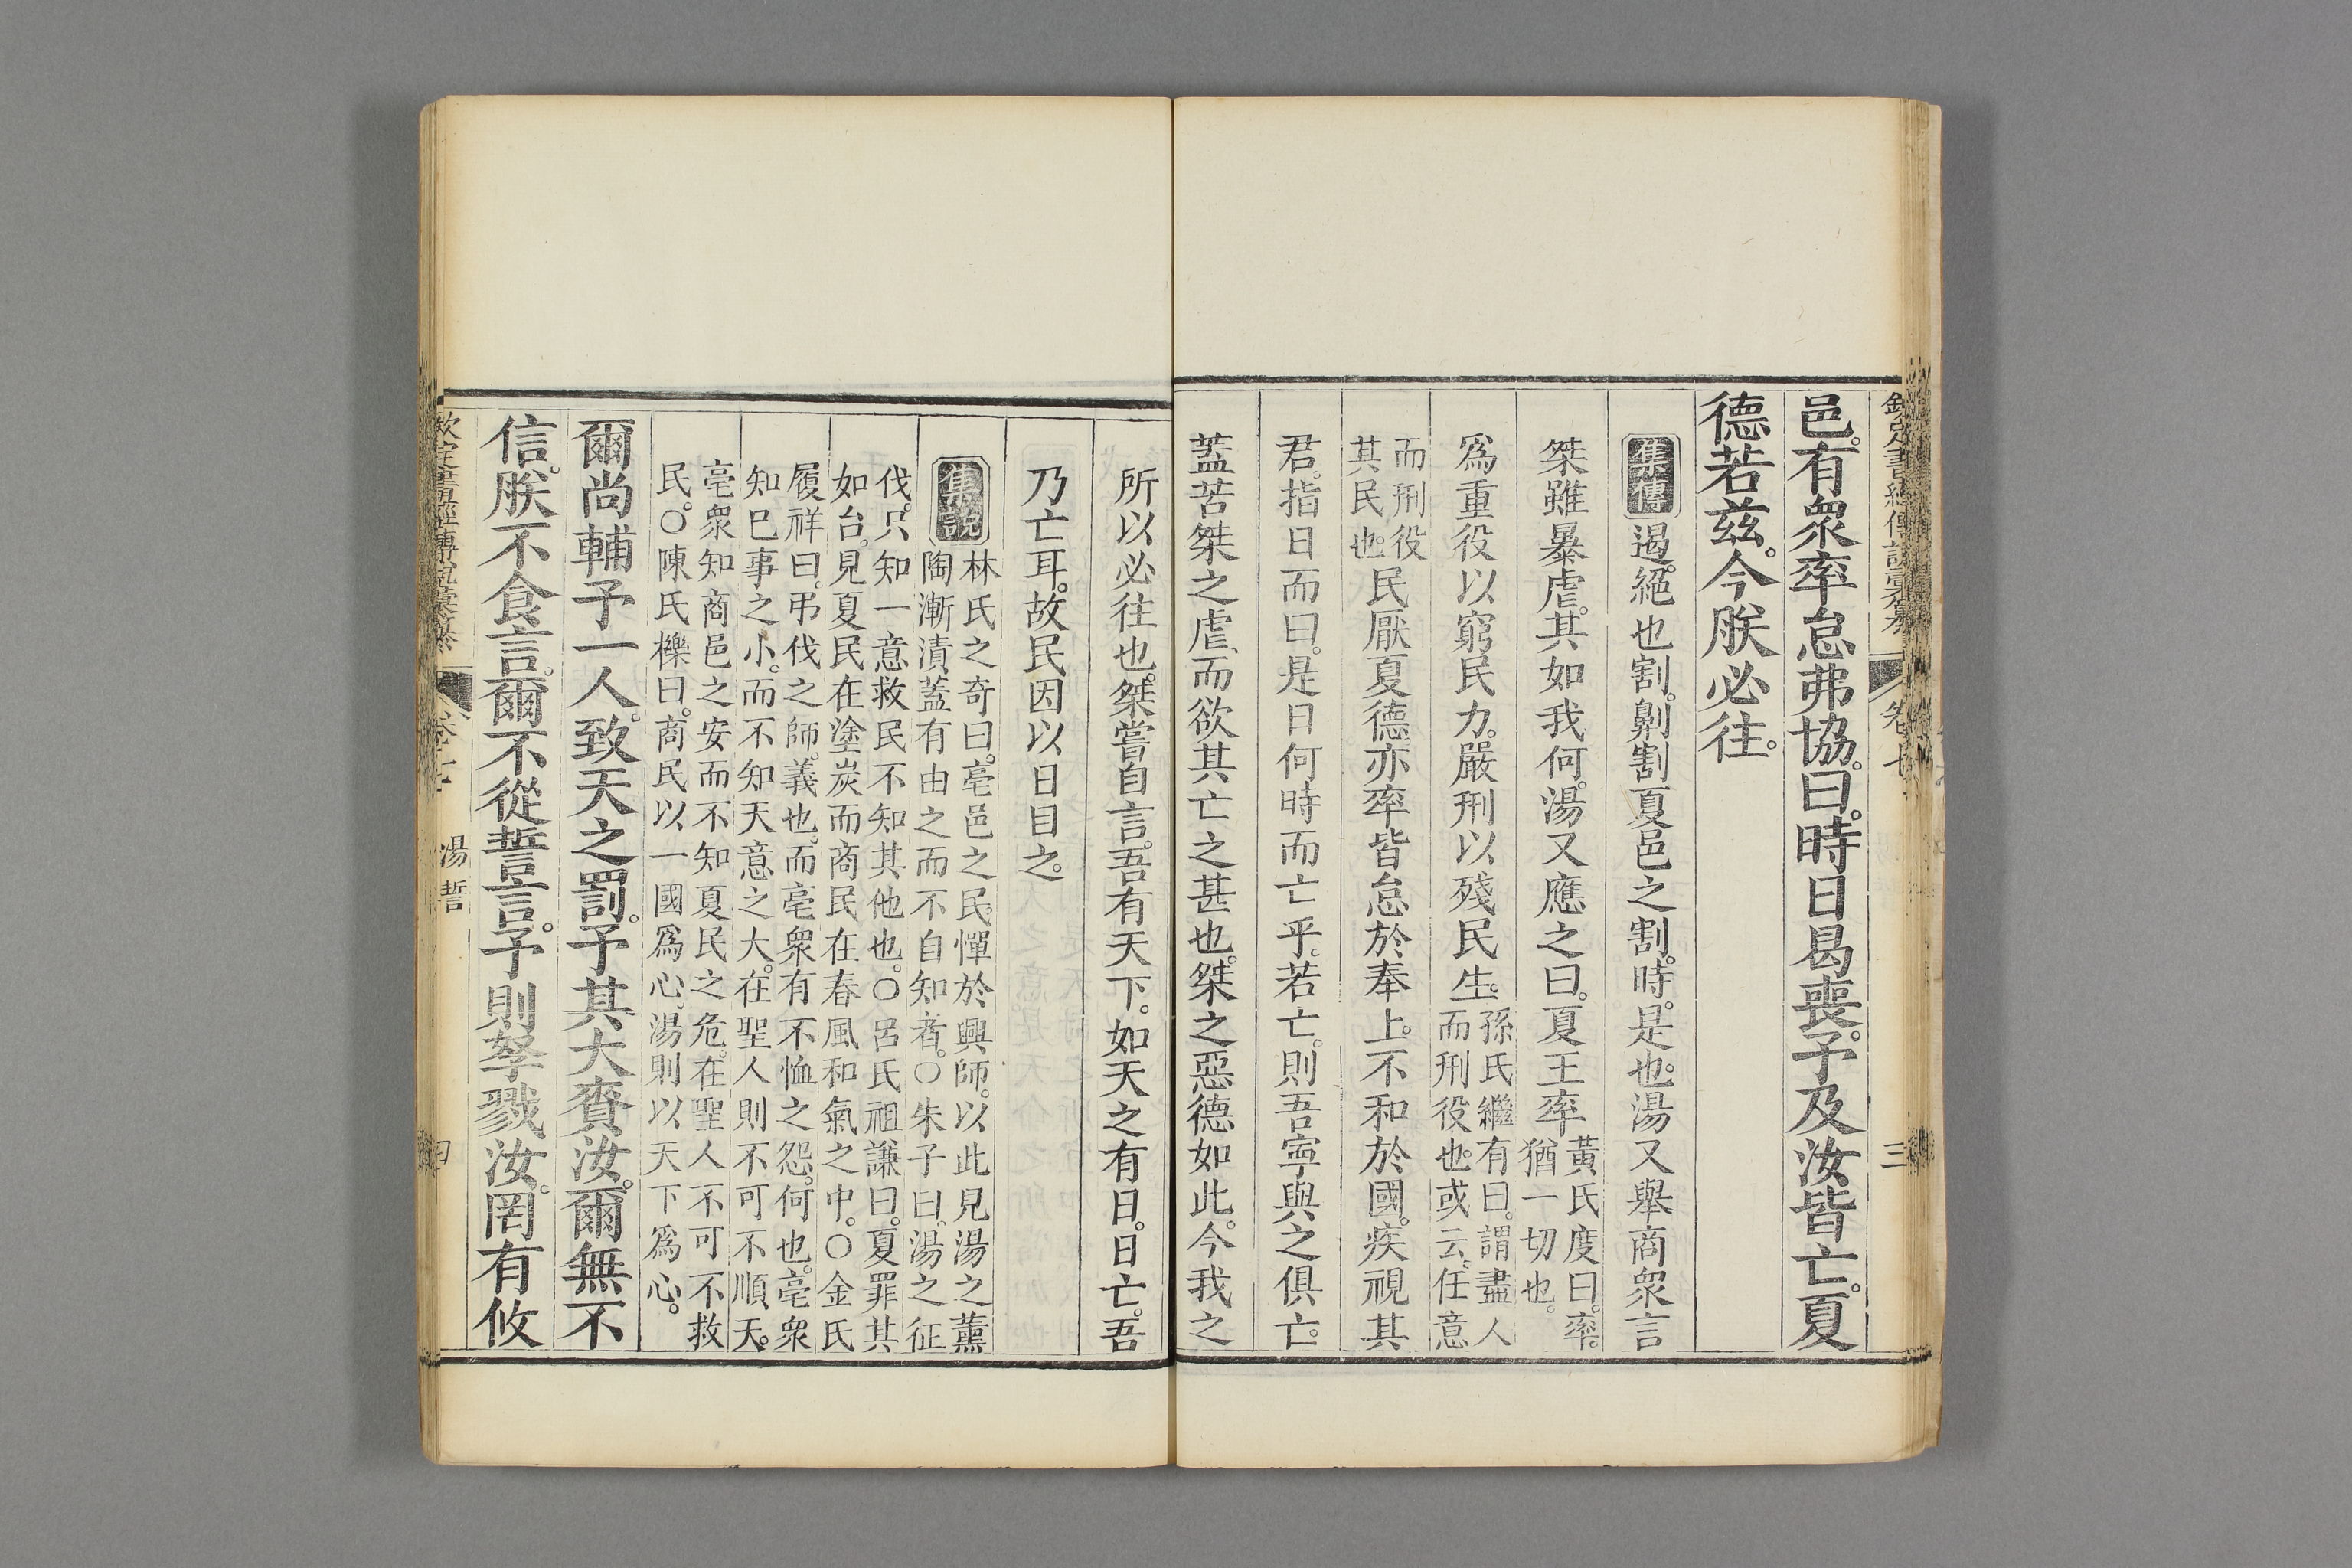 欽定書經傳說彙纂 卷七 三
邑。有衆率怠弗協。曰。時日曷喪。予及汝皆亡。夏
德若兹。今朕必往。
集傳 遏。絕也。割。劓割夏邑之割。時。是也。湯又舉商衆言
桀雖暴虐。其如我何。湯又應之曰。夏王率
黃氏度曰。率。
猶一切也。
爲重役以窮民力。嚴刑以殘民生。
孫氏繼有曰。謂盡人
而刑役也。或云。任意
而刑役
其民也。
民厭夏德。亦率皆怠於奉上。不和於國。疾視其
君。指日而曰。是日何時而亡乎。若亡。則吾寧與之俱亡。
蓋苦桀之虐。而欲其亡之甚也。桀之惡德如此。今我之
所以必往也。桀嘗自言。吾有天下。如天之有日。日亡。吾
乃亡耳。故民因以日目之。
集說
林氏之奇曰。亳邑之民。憚於興師。以此見湯之薰
陶漸漬。蓋有由之而不自知者。○朱子曰。湯之征
伐。只知一意救民。不知其他也。○呂氏祖謙曰。夏罪其
如台。見夏民在塗炭。而商民在春風和氣之中。○金氏
履祥曰。弔伐之師。義也。而亳衆有不恤之怨。何也。亳衆
知巳事之小。而不知天意之大。在聖人則不可不順天。
亳衆知商邑之安。而不知夏民之危。在聖人不可不救
民。○陳氏櫟曰。商民以一國爲心。湯則以天下爲心。
爾尚輔予一人。致天之罰。予其大賚汝。爾無不
信。朕不食言。爾不從誓言。予則孥戮汝。罔有攸
欽定書經傳說彙纂 卷七 湯誓 四